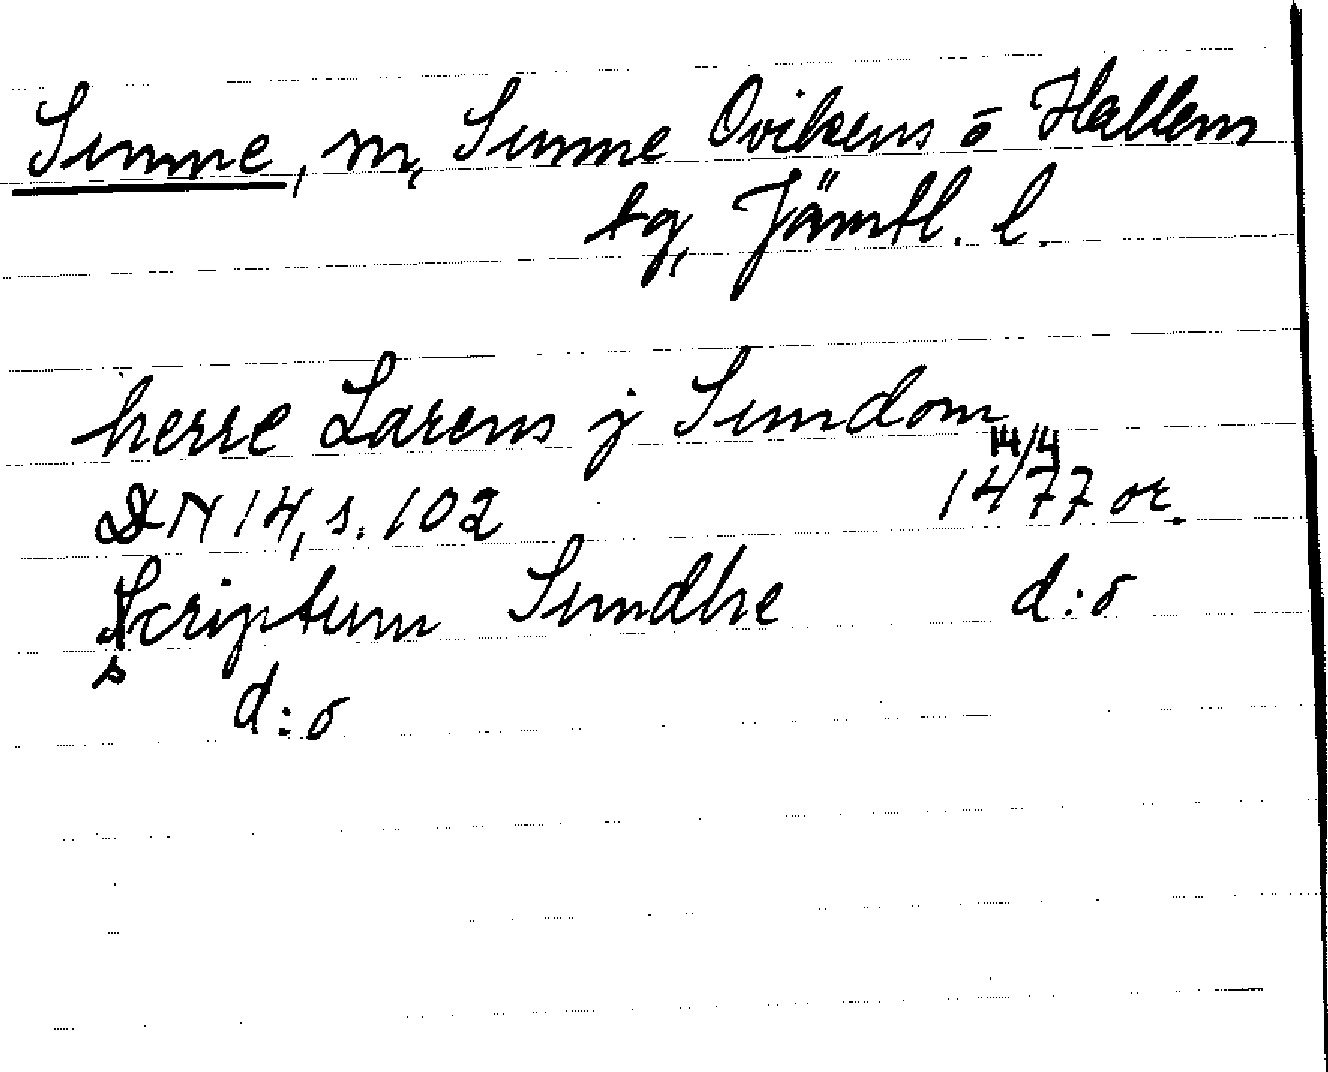 Sunne, m, Sunne Ovikens o Hallens
tg, Jämtl. l.
herre Larens j Sundom
14/4
DN 14, s. 102 1477 or.
Scriptum Sundhe d:o
s
d:o